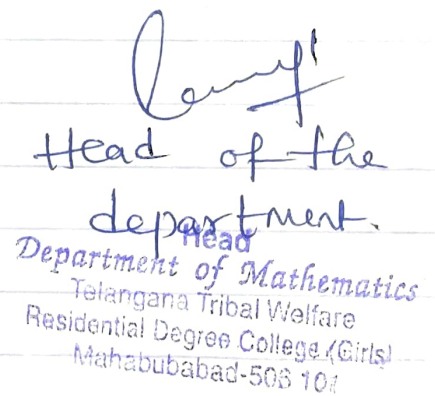 Head of the
department.
Head
Department of Mathematics
Telangana Tribal Welfare
Residential Degree College (Girls)
Mahabubabad-506 101